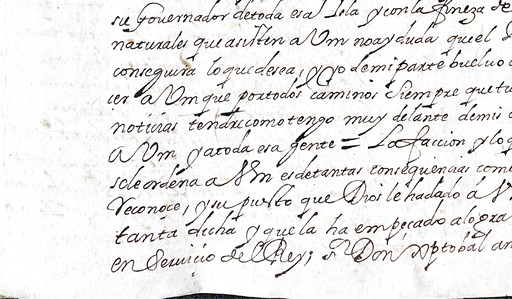 su Governador de toda esa Isla y con la fineza de
naturales que asisten a Vm no ay duda que el
conseguira lo que desea, y Yo de mi parte buelvo
cer a Vm que por todos caminos siempre que
noticias tendre como tengo muy delante de mis
a Vm y a toda esa gente = La faccion y lo
se le ordena a Vm es de tantas consequencias com
reconoce, y supuesto que Dios le ha dado á V
tanta dicha y que la ha empecado a logra
en Servicio del Rey; Sr Don Xptobal